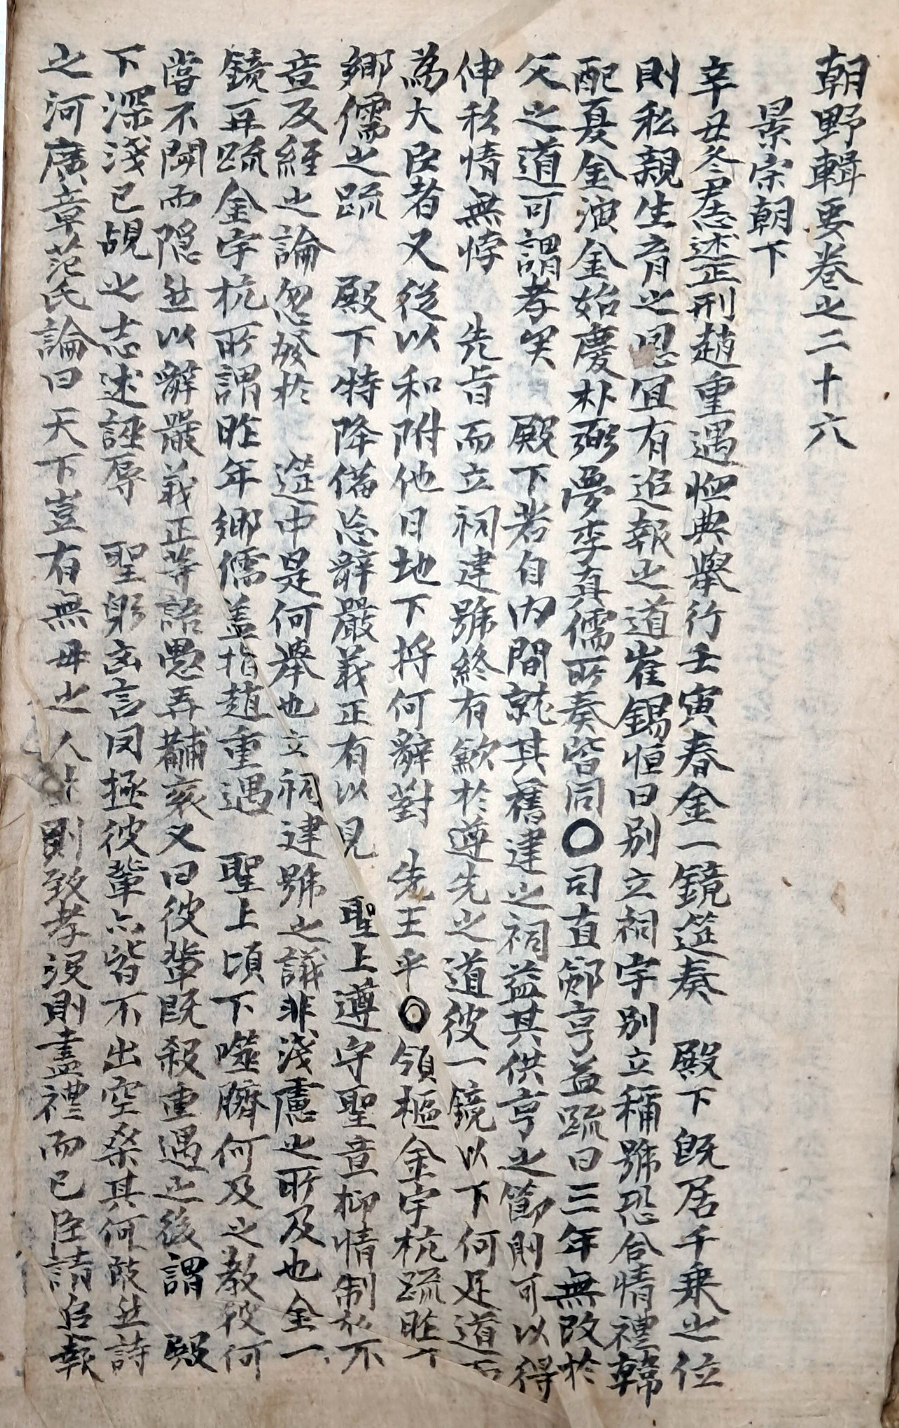 朝野輯要卷之二十六
景宗朝下
辛丑冬君忞述正刑趙重遇恤典擧行壬寅春金一鏡筵奏 殿下旣居千乘之位
則私親生育之恩宜有追報之道崔錫恒曰別立祠宇別立稱號恐合情禮韓
配夏金演金始慶朴弼夢李眞儒所奏皆同○司直鄭亨益疏曰三年無改於
父之道可謂孝矣 殿下若自內間就其舊建之祠益其供享之節則可以得
伸私情無悖 先旨而立祠建號終有歉於遵先之道彼一鏡以下何足道
爲大臣者又從以和附他日地下將何辭對 先王乎○領樞金宇杭疏昨
鄕儒之疏 殿下特降備忘辭嚴義正有以見 聖上遵守聖意抑情制 不
意及經之論忽發於 筵中是何擧也立祠建號之議非淺慮之所及也金一
鏡再疏金宇杭所謂昨年鄕儒盖指趙重遇 聖上頃下噬臍何及之敎彼何
嘗不聞而隱然以辭嚴義正等語 再 又曰彼輩旣殺重遇之後謂 殿
下深淺已覘之志述誣辱 聖躬 言罔極彼輩亦皆不出空桑其何 然詩
之河廣章范氏論曰天下豈有無母之人 則致孝沒則盡禮而已臣請追報